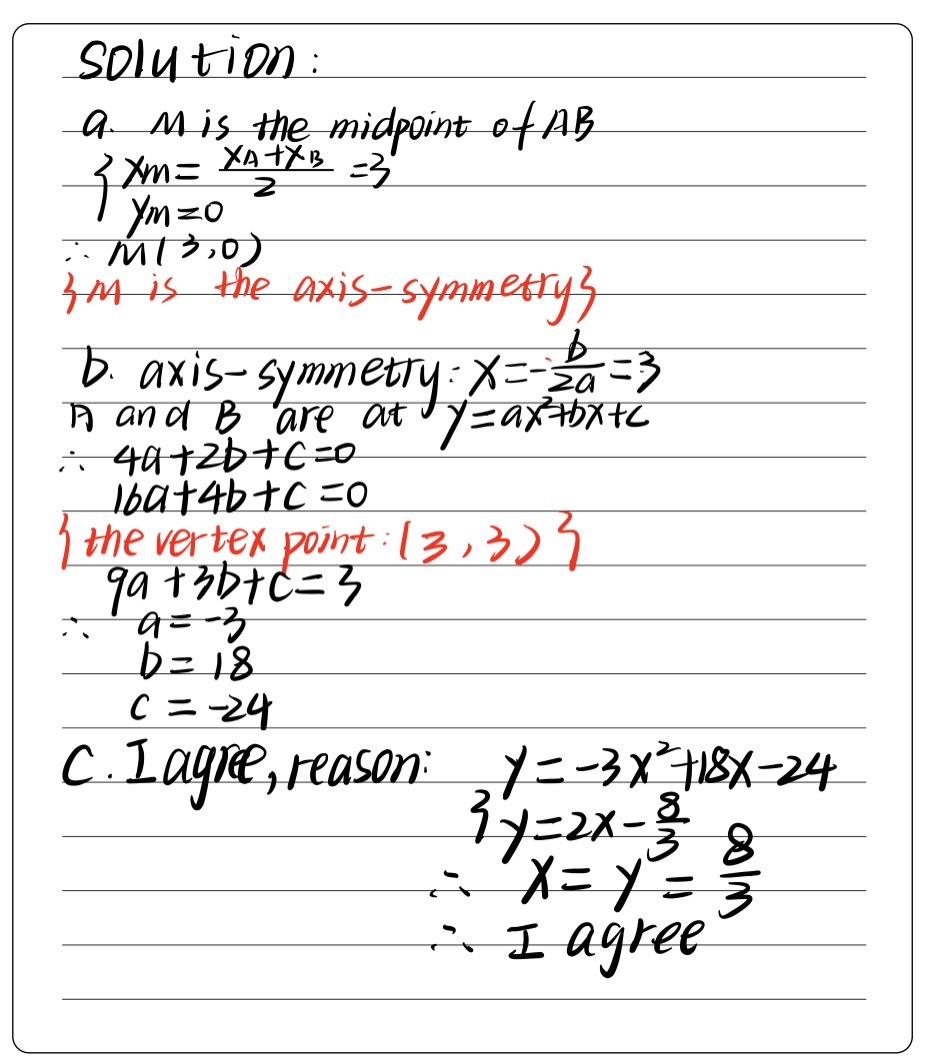 solution:
a. M is the midpoint of AB
{ xm = (xA + xB)/2 = 3
ym = 0
∴ M(3,0)
{M is the axis-symmetry}
b. axis-symmetry: x = -b/2a = 3
A and B are at y = ax²+bx+c
∴ 4a+2b+c=0
16a+4b+c=0
{the vertex point: (3,3)}
9a+3b+c=3
∴ a = -3
b = 18
c = -24
C. I agree, reason: y = -3x²+18x-24
{ y = 2x - 8/3
∴ x = y = 8/3
∴ I agree